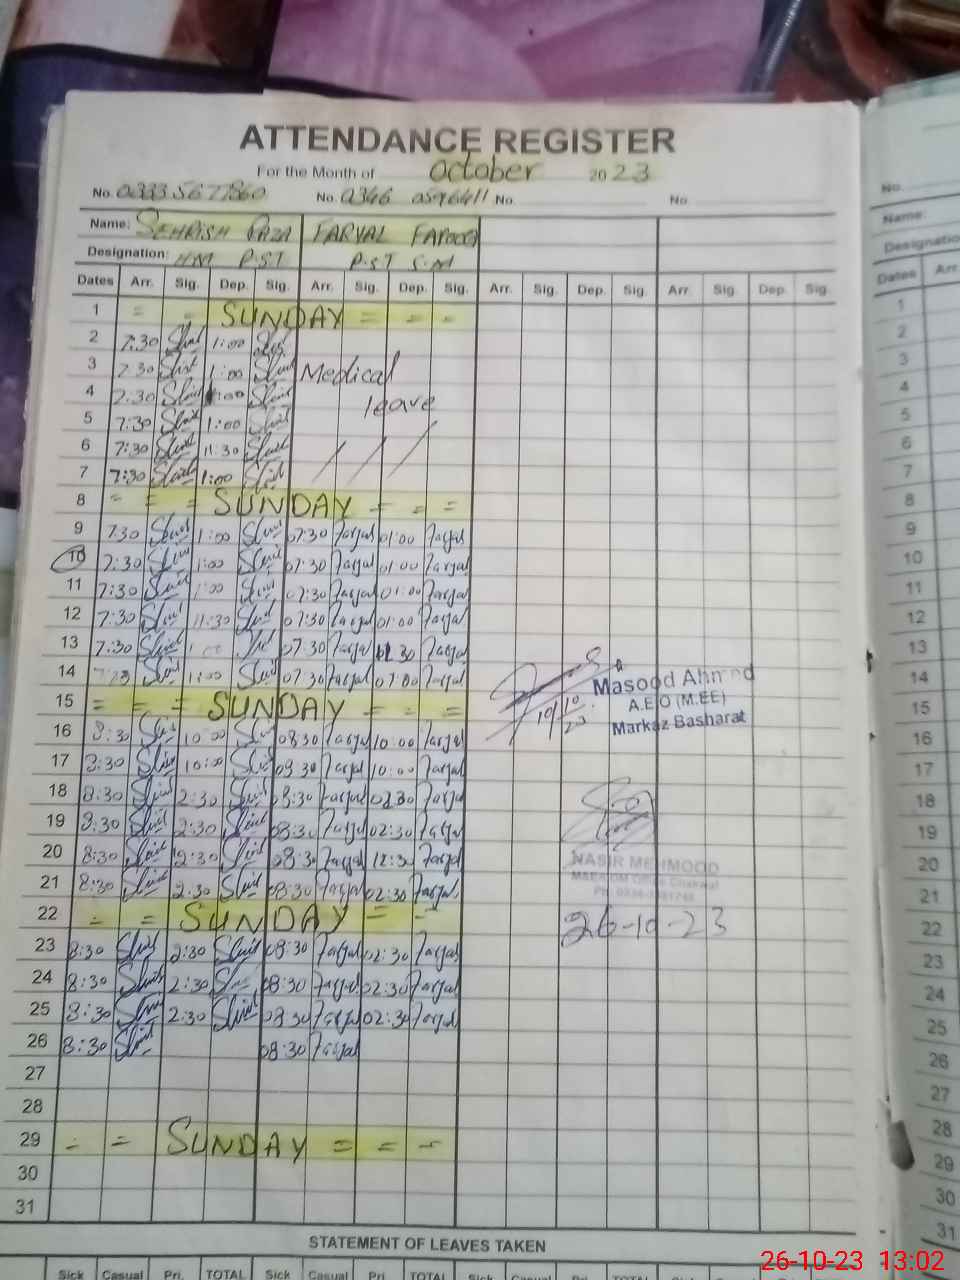 ATTENDANCE REGISTER
For the Month of October 2023
No. 0333 5677860 No. No. No.
Name: SEHRISH RAZA FARYAL FAROOQ
Designation: HM P.S.T P.S.T S.M
Dates Arr. Sig. Dep. Sig. Arr. Sig. Dep. Sig. Arr. Sig. Dep. Sig. Arr. Sig. Dep. Sig.
1 = - SUNDAY = = -
2 7:30 1:00
3 7:30 1:00 Medical
4 7:30 1:00 leave
5 7:30 1:00
6 7:30 11:30
7 7:30 1:00
8 = = = SUNDAY = = =
9 7:30 1:00 07:30 Faryal 01:00 Faryal
10 7:30 1:00 07:30 Faryal 01:00 Faryal
11 7:30 1:00 07:30 Faryal 01:00 Faryal
12 7:30 11:30 07:30 Faryal 01:00 Faryal
13 7:30 07:30 Faryal Faryal
14 07:30 Faryal Faryal
Masood Ahmed
A.E.O (M.EE)
Markaz Basharat
10/10
15 = = = SUNDAY = - =
16 8:30 10:00 08:30 Faryal 10:00 Faryal
17 8:30 10:00 08:30 Faryal 10:00 Faryal
18 8:30 2:30 08:30 Faryal 02:30 Faryal
19 8:30 2:30 08:30 Faryal 02:30 Faryal
20 8:30 08:30 Faryal 12:30 Faryal
21 8:30 2:30 08:30 Faryal 02:30 Faryal
NASIR MEHMOOD
22 = = SUNDAY = =
26-10-23
23 8:30 2:30 08:30 Faryal 02:30 Faryal
24 8:30 2:30 08:30 Faryal 02:30 Faryal
25 8:30 2:30 08:30 Faryal 02:30 Faryal
26 8:30 08:30 Faryal
27
28
29 = = SUNDAY = = -
30
31
STATEMENT OF LEAVES TAKEN
Sick Casual Pri. TOTAL Sick Casual Pri. TOTAL Sick Casual Pri. TOTAL Sick Casual Pri.
No.
Name:
Designatio
Dates Arr
1
2
3
4
5
6
7
8
9
10
11
12
13
14
15
16
17
18
19
20
21
22
23
24
25
26
27
28
29
30
31
26-10-23 13:02